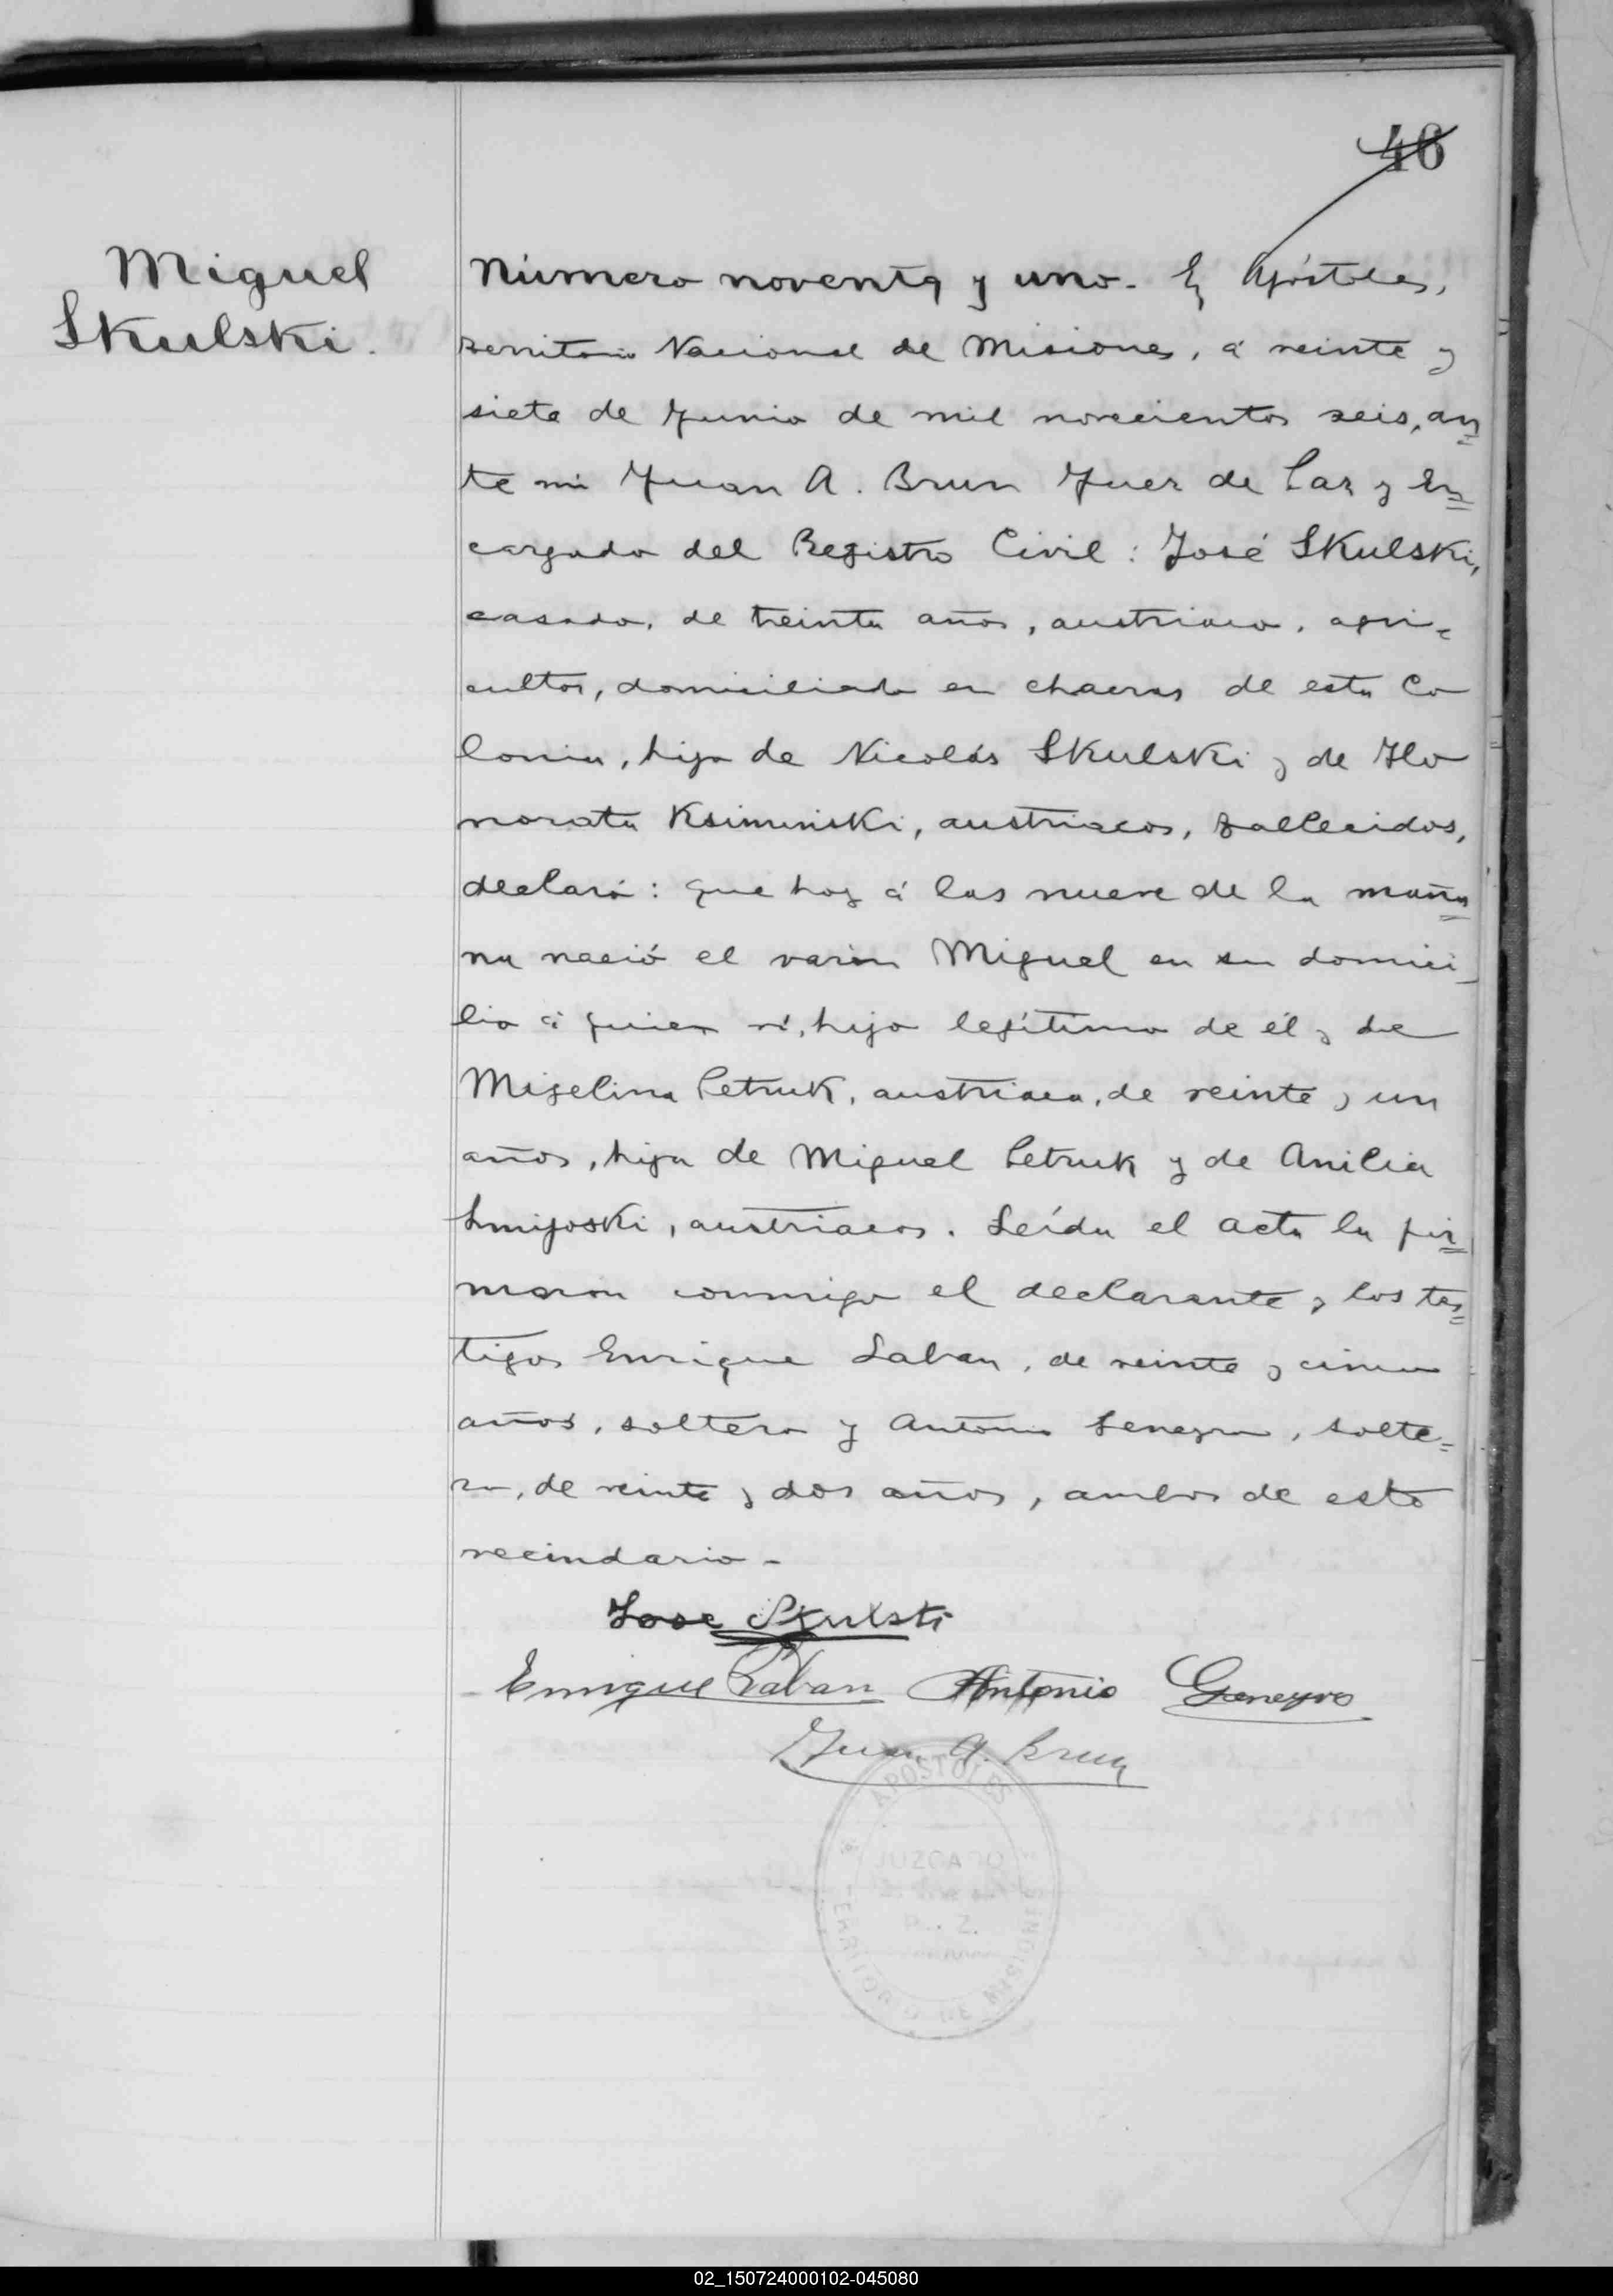 46
Miguel
Skulski.
Número noventa y uno. En Apóstoles,
territorio Nacional de Misiones, á veinte y
siete de Junio de mil novecientos seis, an
te mi Juan A. Brun Juez de Paz y En
cargado del Registro Civil: José Skulski,
casado, de treinta años, austriaco, agri-
cultor, domiciliado en chacras de esta Co
lonia, hijo de Nicolás Skulski y de Ho
norata Ksiminski, austriacos, fallecidos,
declaró: que hoy á las nueve de la maña
na nació el varón Miguel en su domici
lio á quien ví, hijo legítimo de él y de
Migelina Petruk, austriaca, de veinte y un
años, hija de Miguel Petruk y de Anilia
austriacos. Leída el acta la fir
maron conmigo el declarante y los tes
tigos Enrique Laban, de veinte y cinco
años, soltero y Antonio Geneyro, solte-
ro, de veinte y dos años, ambos de este
vecindario-
Jose Skulski
Enrique Laban Antonio Geneyro
Juan A. Brun
APOSTOLES
JUZGADO
TERRITORIO DE MISIONES
02_150724000102-045080